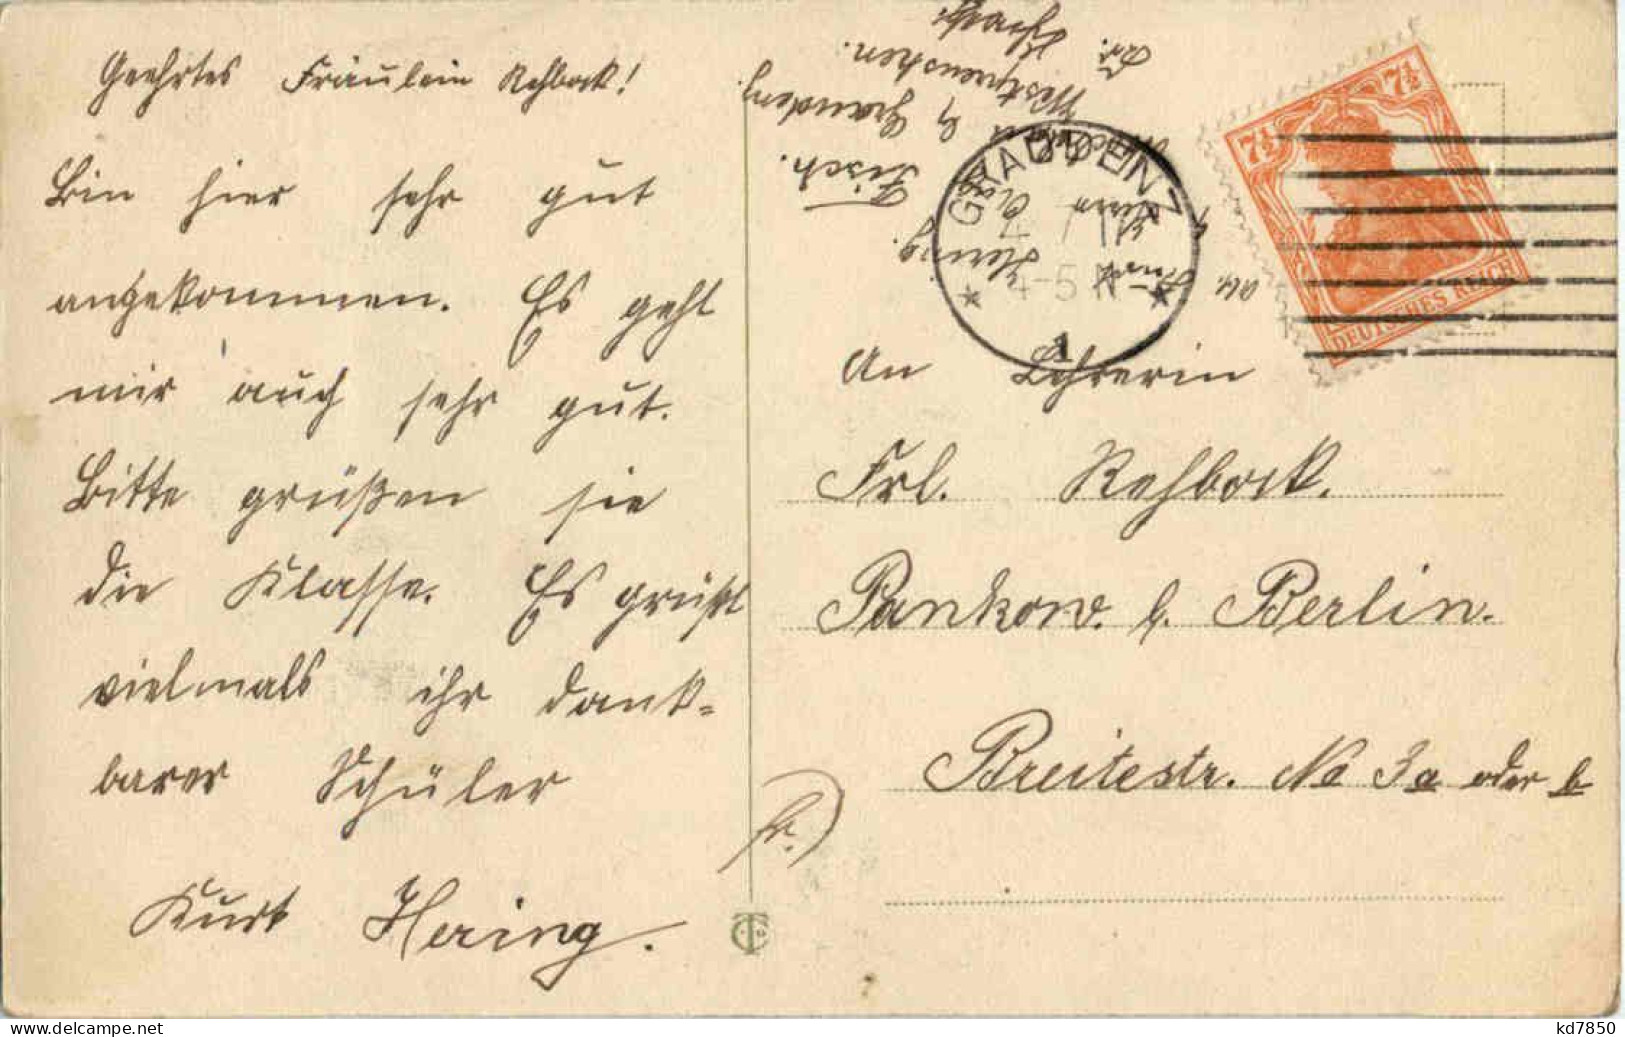 Geehrtes Fräulein Rehbock!
Bin hier sehr gut
angekommen. Es geht
mir auch sehr gut.
Bitte grüßen sie
die Klasse. Es grüßt
vielmals ihr dank=
barer Schüler
Kurt Hering.
Kurt
Hering.
Graudenz.
Westpreussen.
GRAUDENZ
4-5 N
* 1 *
7½ 7½
DEUTSCHES REICH
An Lehrerin
Frl. Rehbock.
Pankow. b. Berlin.
Breitestr. No 3a oder b
kd7850